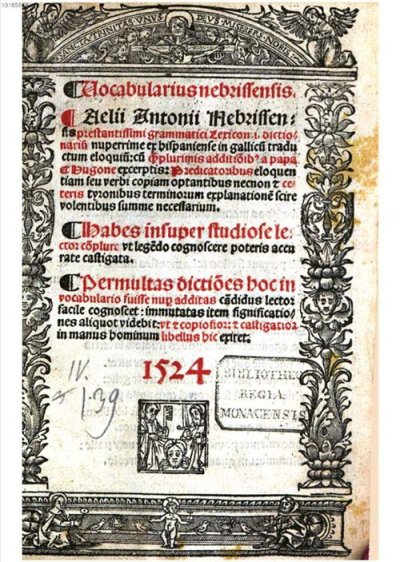 1016586
SANCTA TRINITAS VNVS DEVS MISERERE NOBIS
¶Vocabularius nebrissensis.
¶Aelii Antonii Nebrissen-
sis prestantissimi grammatici Lexicon .i. dictio-
nariũ nuperrime ex hispaniense in gallicũ tradu
ctum eloquiũ: cũ q̃plurimis additiõib⁹ a papa
⁊ Hugone exceptis: Predicatoribus eloquen
tiam seu verbi copiam optantibus necnon ⁊ ce
teris tyronibus terminorum explanationẽ scire
volentibus summe necessarium.
¶Habes insuper studiose le-
ctor cõplura vt legẽdo cognoscere poteris accu
rate castigata.
¶Permultas dictiões hoc in
vocabulario fuisse nup additas cãdidus lector
facile cognoscet: immutatas item significatio-
nes aliquot videbit: vt ⁊ copiosior: ⁊ castigatior
in manus hominum libellus hic exiret.
1524
IV.
139
BIBLIOTHEC
REGIA
MONACENSIS